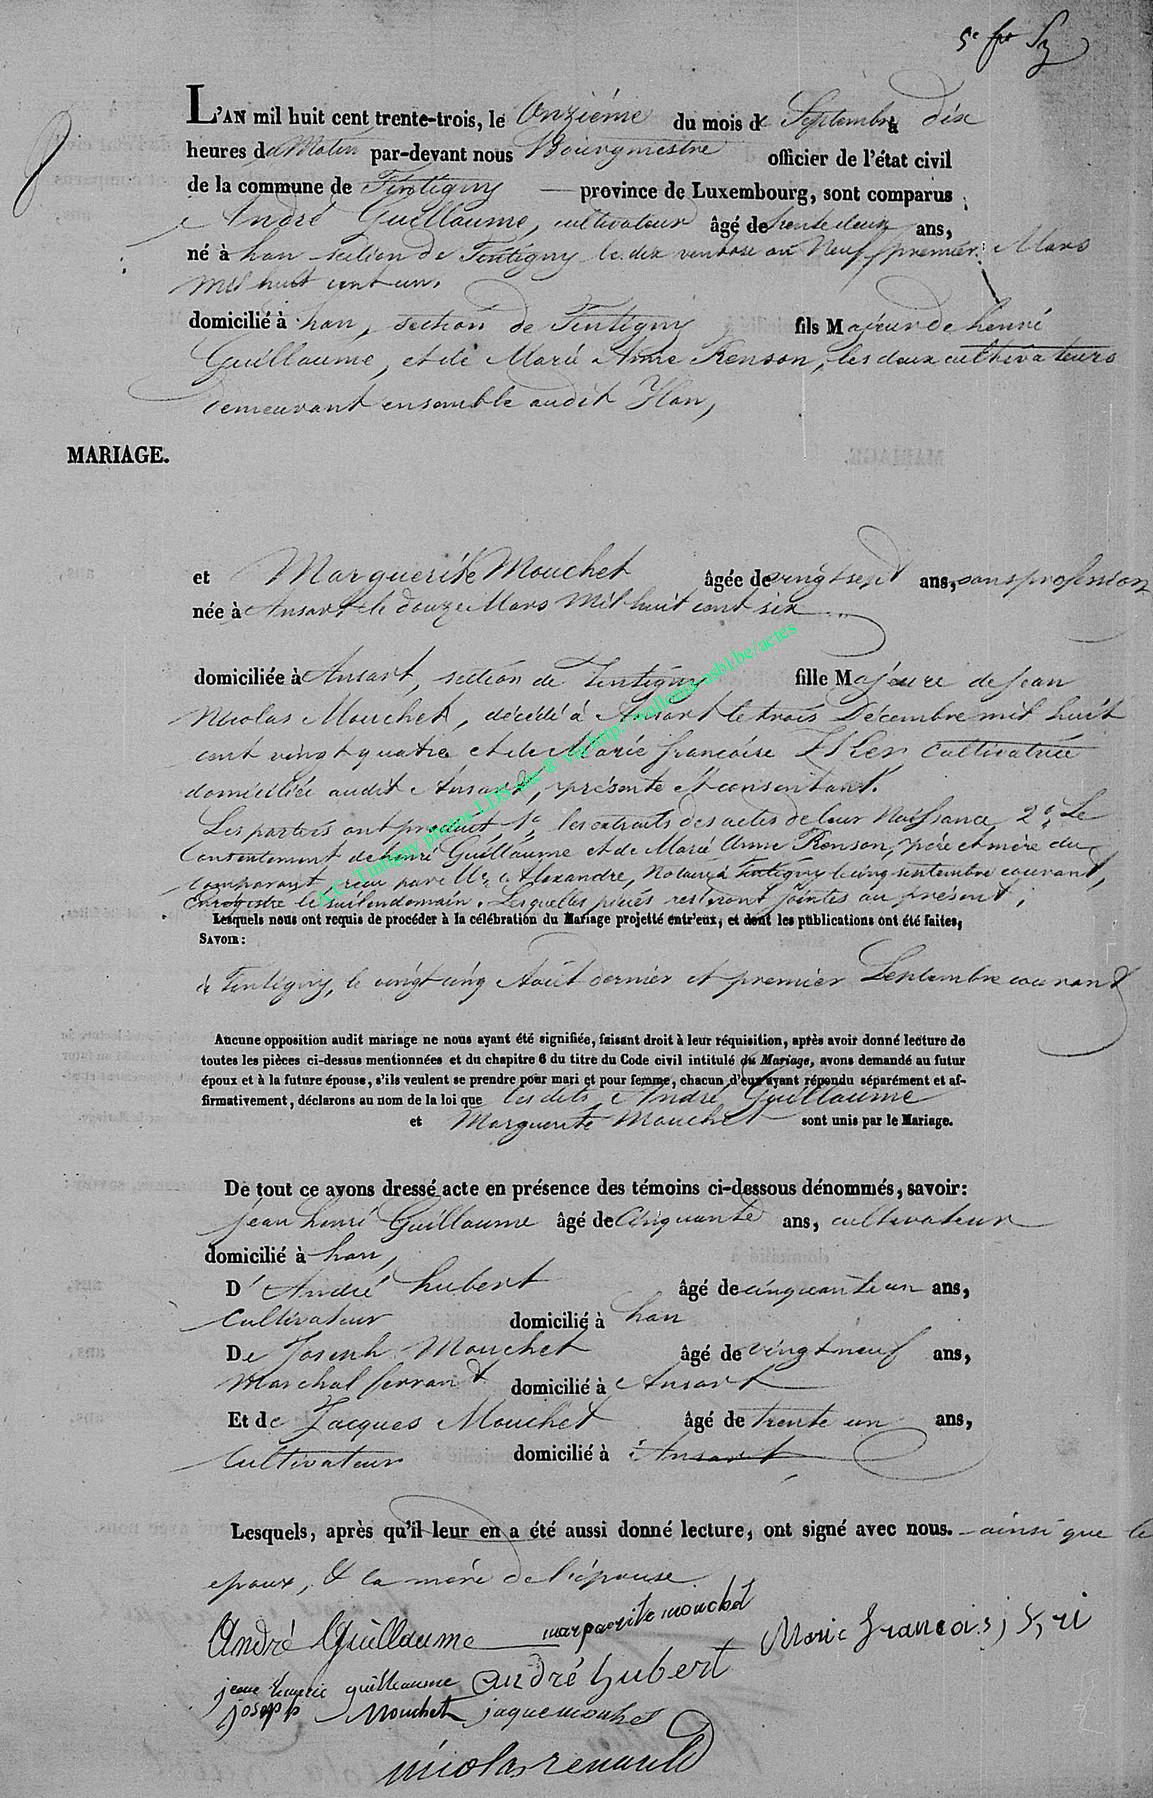 5e
L'AN mil huit cent trente-trois, le Onzième du mois de Septembre à dix
heures du Matin par-devant nous Bourgmestre officier de l'état civil
de la commune de Tintigny province de Luxembourg, sont comparus
André Guillaume, cultivateur âgé de trente deux ans,
né à han section de Tintigny le dix ventose an Neuf, premier Mars
mil huit cent un,
domicilié à han, section de Tintigny fils Majeur de henri
Guillaume, et de Marie Anne Renson, les deux cultivateurs
demeurant ensemble audit Han,
MARIAGE.
et Marguerite Mouchet âgée de vingt sept ans, sans profession
née à Ansart, le douze Mars mil huit cent six
domiciliée à Ansart, section de Tintigny fille Majeure de jean
Nicolas Mouchet, décédé à Ansart le trois Décembre mil huit
cent vingt quatre et de Marie françoise cultivatrice
domiciliée audit Ansart, présente et consentant.
Les parties ont produit, 1o, les extraits des actes de leur Naissance, 2o, Le
Consentement de henri Guillaume et de Marie Anne Renson, père et mère du
comparant, reçu par Alexandre, Notaire à Tintigny le cinq septembre courant,
Enregistré le surlendomain. Lesquelles pièces resteront jointes au présent;
Lesquels nous ont requis de procéder à la célébration du Mariage projetté entr'eux, et dont les publications ont été faites,
SAVOIR:
à Tintigny, le vingt cinq Août dernier et premier Septembre courant
Aucune opposition audit mariage ne nous ayant été signifiée, faisant droit à leur réquisition, après avoir donné lecture de
toutes les pièces ci-dessus mentionnées et du chapitre 6 du titre du Code civil intitulé du Mariage, avons demandé au futur
époux et à la future épouse, s'ils veulent se prendre pour mari et pour femme, chacun d'eux ayant répondu séparément et af-
firmativement, déclarons au nom de la loi que les dits André Guillaume
et Marguerite Mouchet sont unis par le Mariage.
De tout ce avons dressé acte en présence des témoins ci-dessous dénommés, savoir:
jean henri Guillaume âgé de Cinquante ans, cultivateur
domicilié à han,
D'André hubert âgé de cinquante un ans,
Cultivateur domicilié à han
De Joseph Mouchet âgé de vingt neuf ans,
Marchal ferrant domicilié à Ansart
Et de Jacques Mouchet âgé de trente un ans,
Cultivateur domicilié à Ansart
Lesquels, après qu'il leur en a été aussi donné lecture, ont signé avec nous. ainsi que le
epoux, & la mère de l'épouse.
André Guillaume marguerite mouchet Marie francois
jean henrie guilleaume andré hubert
joseph Mouchet jaque mouhet
nicolas renauld
A.C. Tintigny photos LDS via http://wallonia-asbl.be/actes